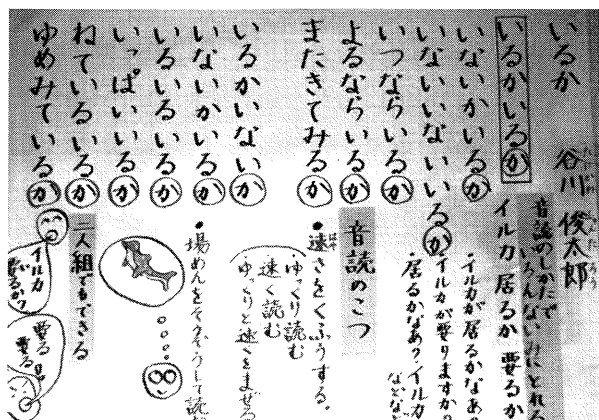 いるか
谷川 俊太郎
たにかわ しゅんたろう
いるかいるか
いないかいるか
いないいないいるか
いつならいるか
よるならいるか
またきてみるか
いるかいないか
いないかいるか
いるいるいるか
いっぱいいるか
ねているいるか
ゆめみているか
音読のしかたで
いろんないみにとれる
イルカ 居るか 要るか
・イルカが居るかなあ
・イルカが要りますか
・居るかなあ?イルカ
などなど
音読のこつ
●速さをくふうする。
はや
・ゆっくり読む
速く読む
・ゆっくりと速さをまぜる
●場めんをそうぞうして読
二人組でもできる
イルカ
要るか?
要る
要る